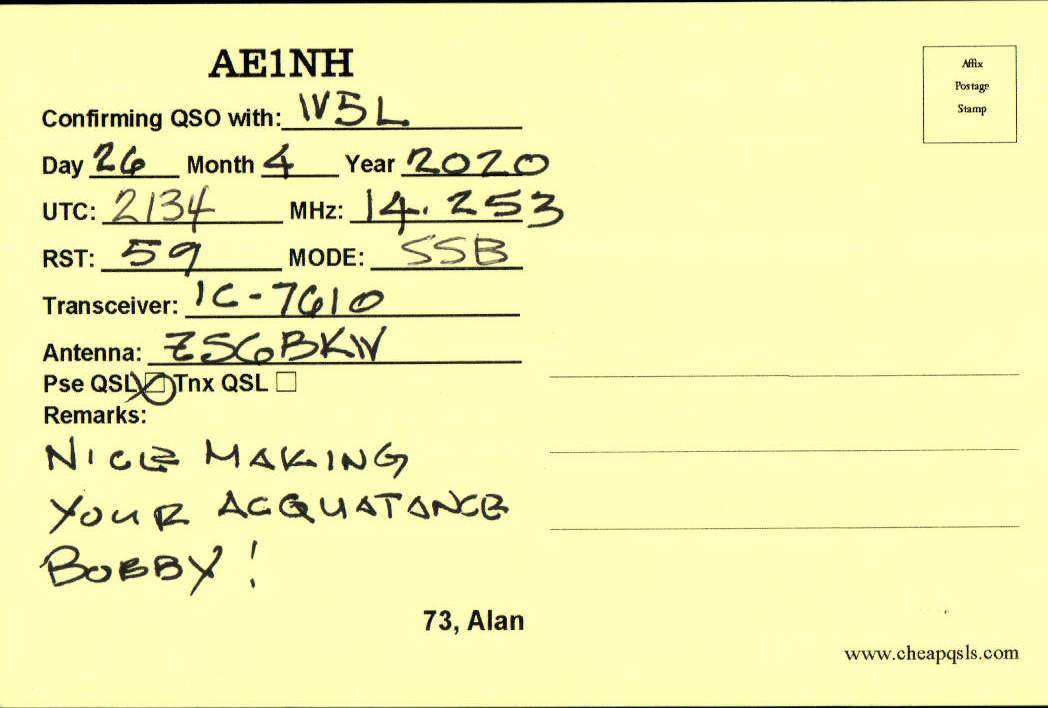 AE1NH
Confirming QSO with: W5L
Day 26 Month 4 Year 2020
UTC: 2134 MHz: 14.253
RST: 59 MODE: SSB
Transceiver: IC-7610
Antenna: ZS6BKW
Pse QSL Tnx QSL
Remarks:
NICE MAKING
YOUR ACQUATANCE
BOBBY!
73, Alan
Affix
Postage
Stamp
www.cheapqsls.com